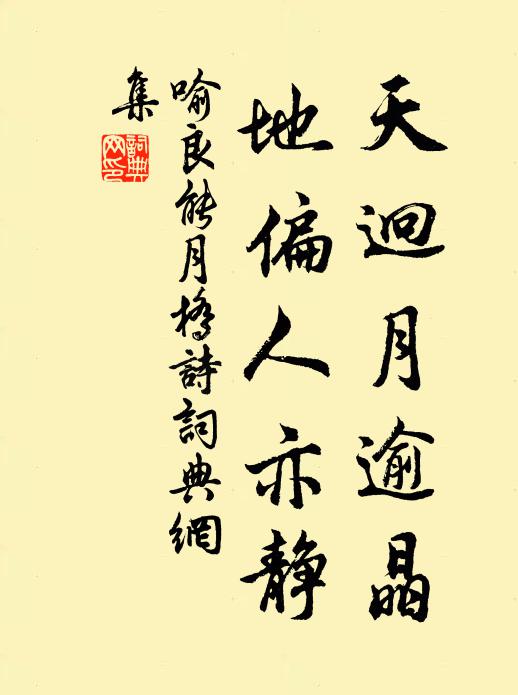 天迥月逾晶
地偏人亦静
喻良能月桥詩詞典網
集
詞典
网印